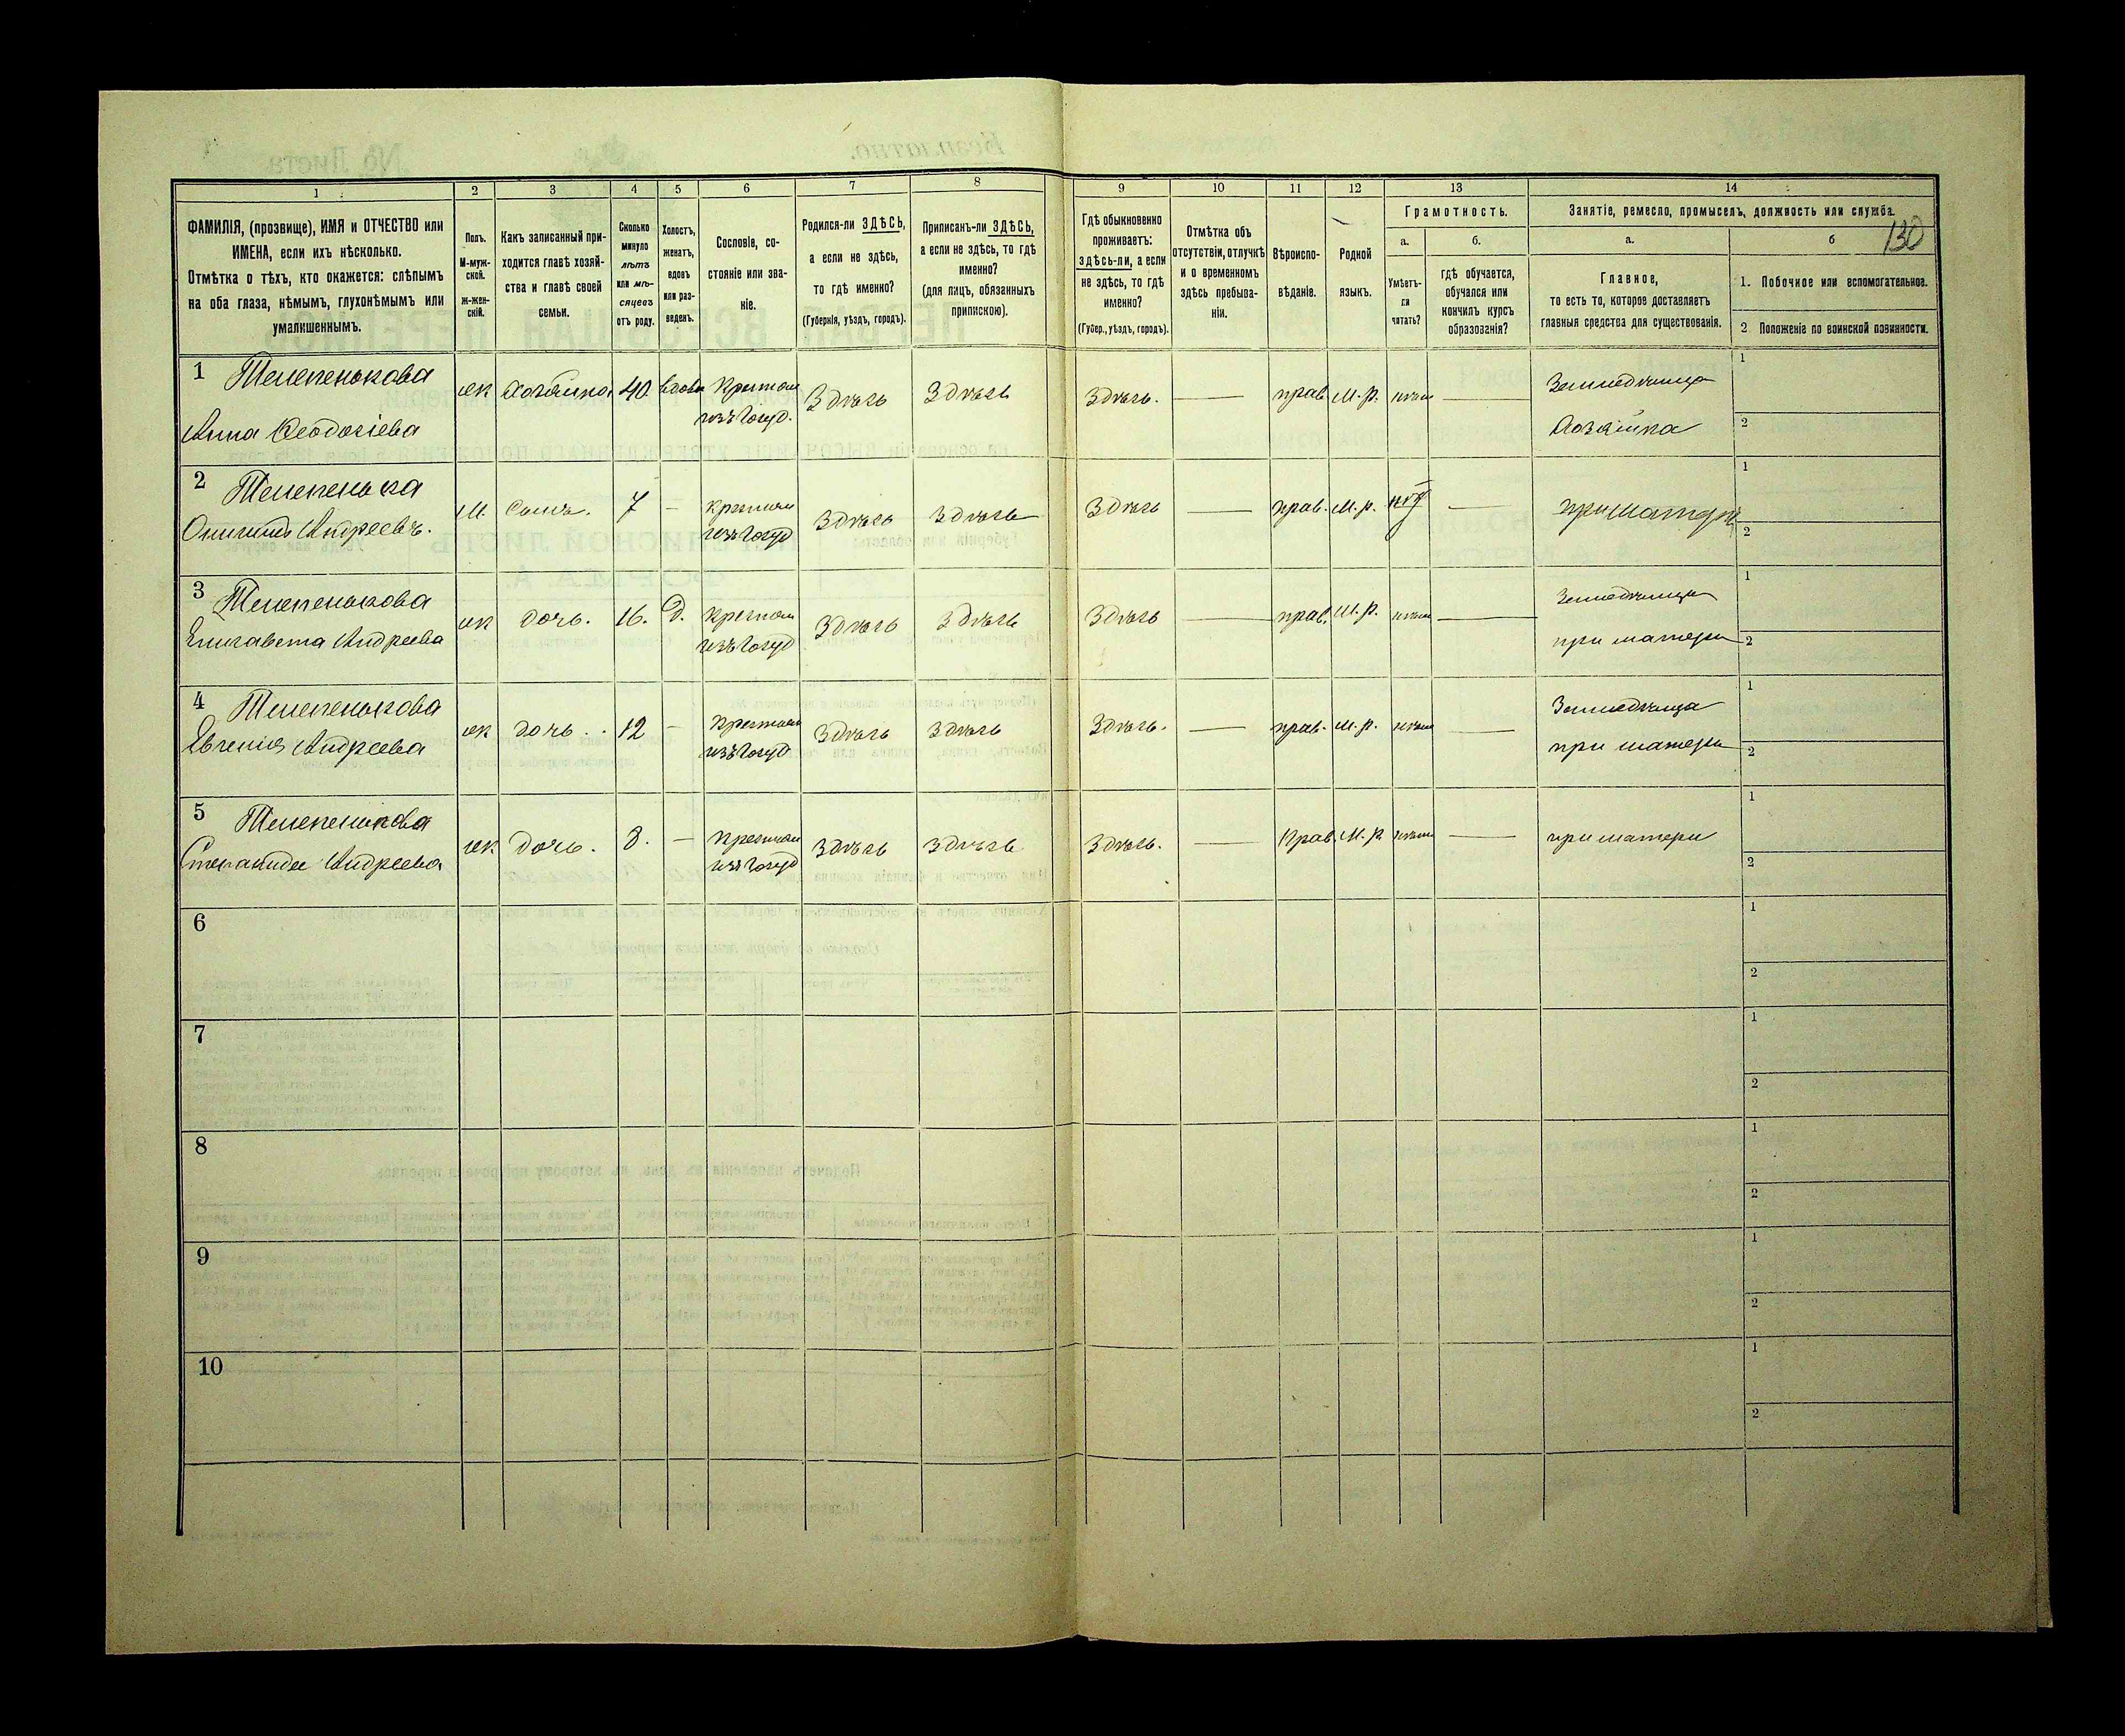 1 2 3 4 5 6 7 8 9 10 11 12 13 14
ФАМИЛІЯ, (прозвище), ИМЯ и ОТЧЕСТВО или
ИМЕНА, если ихъ нѣсколько.
Отмѣтка о тѣхъ, кто окажется: слѣпымъ
на оба глаза, нѣмымъ, глухонѣмымъ или
умалишеннымъ.
Полъ.
М-муж-
ской.
Ж-жен-
скій.
Какъ записанный при-
ходится главѣ хозяй-
ства и главѣ своей
семьи.
Сколько
минуло
лѣтъ
или мѣ-
сяцевъ
отъ роду.
Холостъ,
женатъ,
вдовъ
или раз-
веденъ.
Сословіе, со-
стояніе или зва-
ніе.
Родился-ли ЗДѢСЬ,
а если не здѣсь,
то гдѣ именно?
(Губернія, уѣздъ, городъ).
Приписанъ-ли ЗДѢСЬ,
а если не здѣсь, то гдѣ
именно?
(для лицъ, обязанныхъ
припискою).
Гдѣ обыкновенно
проживаетъ:
здѣсь-ли, а если
не здѣсь, то гдѣ
именно?
(Губер., уѣздъ, городъ).
Отмѣтка объ
отсутствіи, отлучкѣ
и о временномъ
здѣсь пребыва-
ніи.
Вѣроиспо-
вѣданіе.
Родной
языкъ.
Грамотность.
а.
Умѣетъ-
ли
читать?
б.
гдѣ обучается,
обучался или
кончилъ курсъ
образованія?
Занятіе, ремесло, промыселъ, должность или служба.
130
а.
Главное,
то есть то, которое доставляетъ
главныя средства для существованія.
б
1. Побочное или вспомогательное.
2. Положеніе по воинской повинности.
1 Телепенькова ж Хозяйка 40 вдова Крестьян Здѣсь Здѣсь Здѣсь. — прав. М.р. нѣт — Земледѣлица 1
Анна Феодосіева изъ Госуд. Хозяйка 2
2 Телепенька М. Сынъ. 7 — Крестьян Здѣсь Здѣсь Здѣсь — прав. М.р. — при матери 1
Андреевъ. изъ Госуд 2
3 Телепенькова ж дочь. 16. д. Крестьян Здѣсь Здѣсь Здѣсь — прав. М.р. нѣт — Земледѣлица 1
Елисавета Андреева изъ Госуд при матери 2
4 Телепенькова ж дочь. 12 — Крестьян Здѣсь Здѣсь Здѣсь. — прав. М.р. нѣт — Земледѣлица 1
Евгенія Андреева изъ Госуд при матери 2
5 Телепенькова ж Дочь. 8. — Крестьян Здѣсь Здѣсь Здѣсь. — Прав. М.р. нѣт — при матери 1
Степанида Андреева изъ Госуд 2
6 1
2
7 1
2
8 1
2
9 1
2
10 1
2